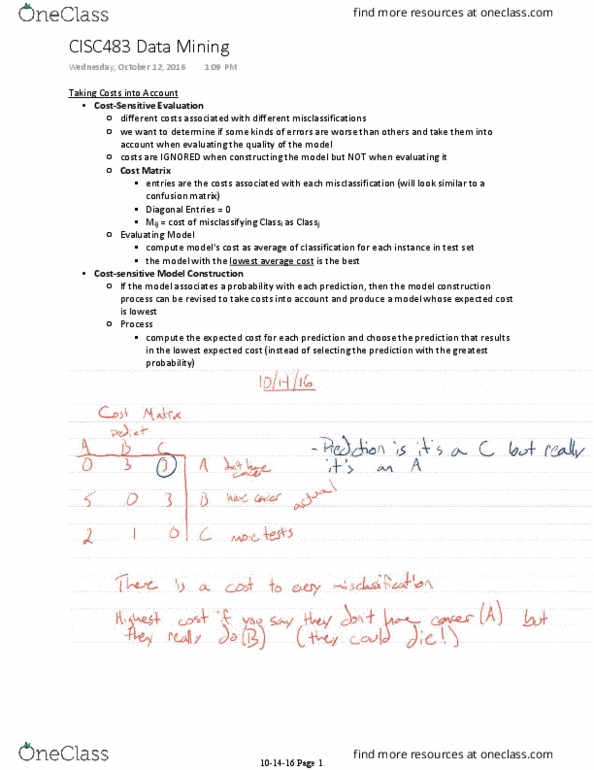 OneClass
find more resources at oneclass.com
CISC483 Data Mining
Wednesday, October 12, 2016 1:09 PM
Taking Costs into Account
• Cost-Sensitive Evaluation
o different costs associated with different misclassifications
o we want to determine if some kinds of errors are worse than others and take them into
account when evaluating the quality of the model
o costs are IGNORED when constructing the model but NOT when evaluating it
o Cost Matrix
▪ entries are the costs associated with each misclassification (will look similar to a
confusion matrix)
▪ Diagonal Entries = 0
▪ Mᵢⱼ = cost of misclassifying Classᵢ as Classⱼ
o Evaluating Model
▪ compute model's cost as average of classification for each instance in test set
▪ the model with the lowest average cost is the best
• Cost-sensitive Model Construction
o If the model associates a probability with each prediction, then the model construction
process can be revised to take costs into account and produce a model whose expected cost
is lowest
o Process
▪ compute the expected cost for each prediction and choose the prediction that results
in the lowest expected cost (instead of selecting the prediction with the greatest
probability)
10/14/16
Cost Matrix
predict
A B C
0 3 3 A don't have cancer
- Prediction is it's a C but really
it's an A
5 0 3 B have cancer actual
2 1 0 C more tests
There is a cost to every misclasification
Highest cost if you say they don't have cancer (A) but
they really do (B) (they could die!)
OneClass
find more resources at oneclass.com
10-14-16 Page 1